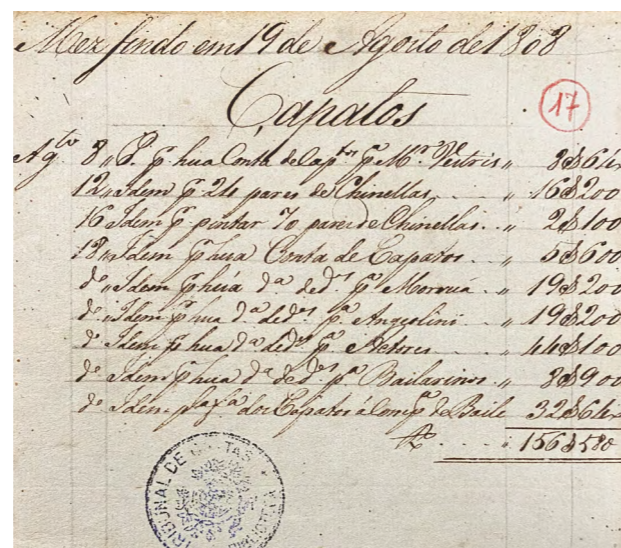 Mez findo em 19 de Agosto de 1808
Çapatos
17
Agto 8 „ P. pr hua Conta de Captos pa Mr Vestris „ 8$640
12 „ Idem pr 24 pares de Chinellas „ 16$200
16 Idem pr pintar 70 pares de Chinellas „ 2$100
18 „ Idem pr hua Conta de Çapatos „ 5$600
do „ Idem pr hua da de dos pa Moroua „ 19$200
do „ Idem pr hua da de dos pa Angiolini „ 19$200
do Idem pr hua da de dos pa Actores „ 44$100
do Idem pr hua da de dos pa Bailarinos „ 8$900
do Idem dos Çapatos de Baile 32$640
Rs „ 156$580
TRIBUNAL DE CONTAS